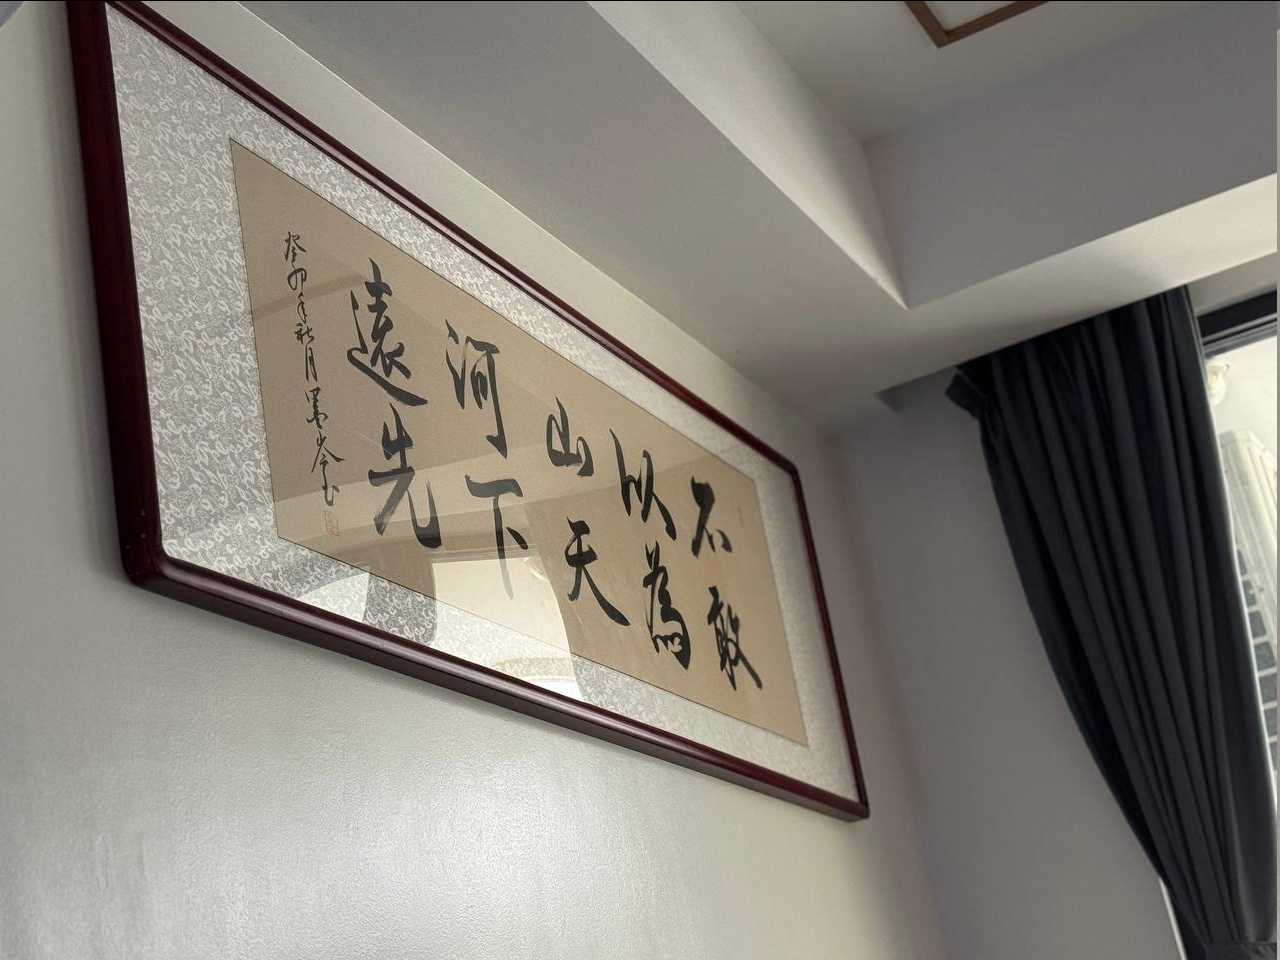 不以山河遠
敢為天下先
癸卯年秋月墨岑书